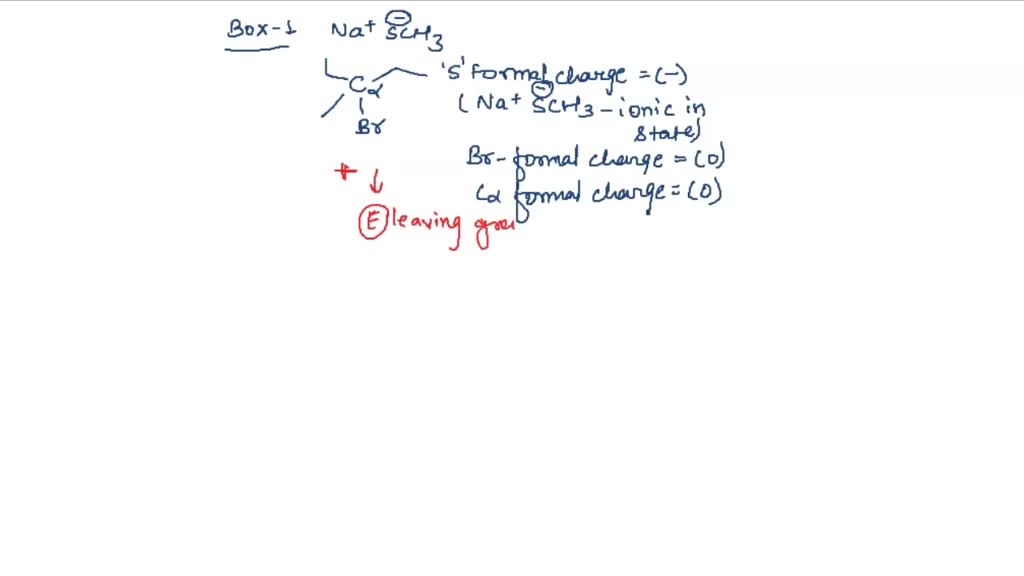 Box-1 Na+ SCH3
Cα
Br
'S' formal charge = (-)
(Na+ SCH3 - ionic in
state)
Br - formal charge = (0)
Cα formal charge = (0)
+ ↓
E leaving